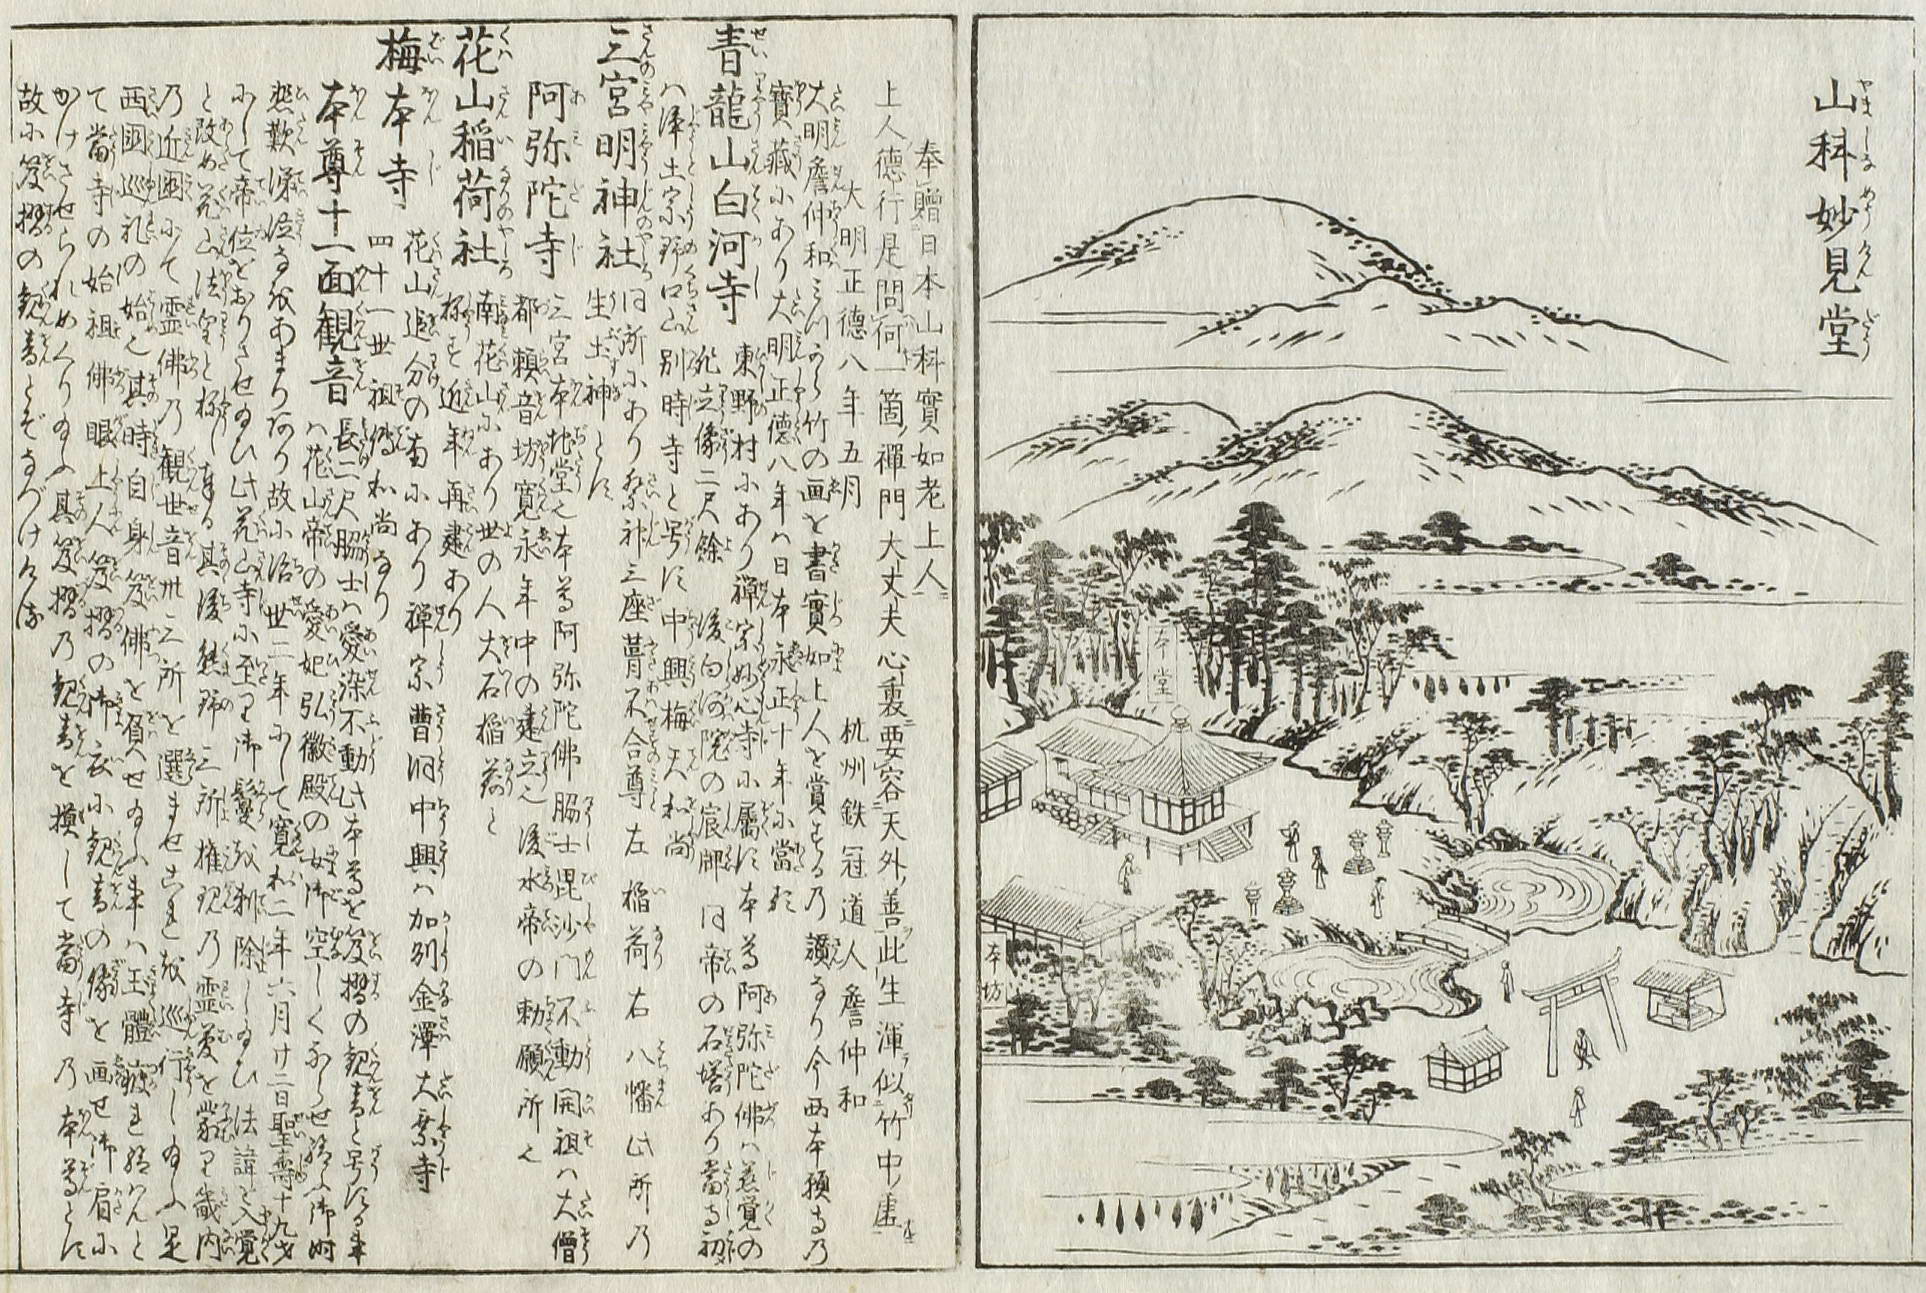 山科妙見堂
本堂
本坊
奉贈日本山科實如老上人
上人德行是問何一箇禪門大丈夫心裏要容天外善此生渾似竹中虛
大明正德八年五月 杭州鉄冠道人詹仲和
大明詹仲和みづから竹の画を書實如上人を賞する乃讃なり今西本願寺乃
寶藏にあり大明正德八年ハ日本永正十年に當る
青龍山白河寺 東野村にあり禅宗妙心寺に屬す本尊阿弥陀佛ハ慈覚の
ハ浄土宗 後白河院の宸 同帝の石塔あり當寺初
別時寺と号す中興梅天和尚
三宮明神社 同所にあり祭神三座 不合尊左稲荷右八幡此所乃
生土神とす
阿弥陀寺 三宮本地堂也本尊阿弥陀佛脇士毘沙門不動開祖ハ大僧
都頼音坊寛永年中の建立也後水帝の勅願所也
花山稲荷社 南花山にあり世の人大石稲荷と
称す近年再建あり
梅本寺 花山追分の南にあり禅宗曹洞中興ハ加州金澤大乗寺
四十一世祖 和尚なり
本尊十一面観音 長二尺脇士ハ愛染不動此本尊を笈摺の観音と号する事
ハ花山帝の愛妃弘徽殿の女御空しくならせ給ふ御時
悲歎涕泣なをあまりあり故に治世二年にして寛和二年六月廿二日聖壽十九才
にして帝位をおりさせ給ひ此花山寺に至り御髪を剃除し給ひ法諱を入覚
と改め花山法皇と称し奉る其後熊野三所権現乃霊夢を蒙り畿内
乃近國にて霊佛乃観世音卅三所を選ませこれを巡行し給ふ是
西國巡礼の始也其時自身笈佛を負せ給ふ事ハ玉體疲れ給はんと
て當寺の始祖佛眼上人笈摺の御衣に観音の像を画せ御肩に
かけさせられめぐり給ふ其笈摺乃観音を模して當寺乃本尊とす
故に笈摺の観音とぞなづけける